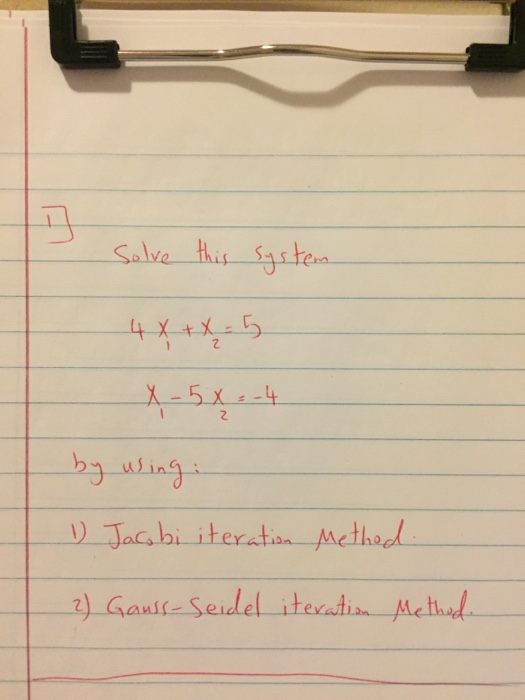 1]
Solve this system
4x₁ + x₂ = 5
x₁ - 5x₂ = -4
by using:
1) Jacobi iteration Method.
2) Gauss-Seidel iteration Method.